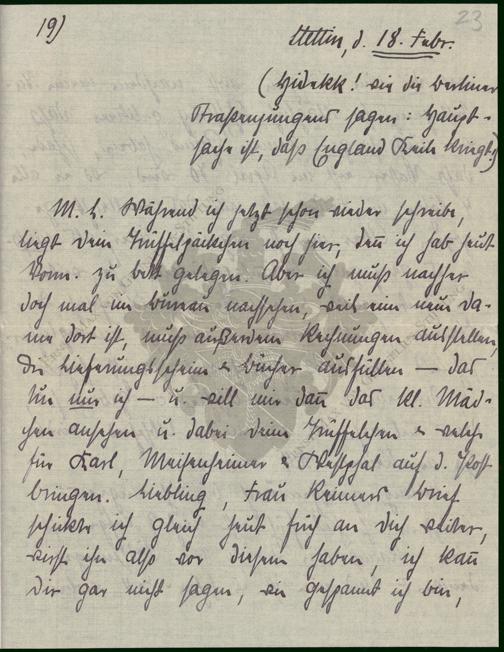 19)
23
Stettin, d. 18. Febr.
(Hidekk! wie die Berliner
Straßenjungens sagen: Haupt-
sache ist, daß England Keile kriegt)
M. L. Während ich jetzt schon wieder schreibe,
liegt dein Trüffelpäckchen noch hier, den ich hab heut
Vorm. zu bett gelegen. Aber ich muß nachher
doch mal im büreau nachsehen, weil eine neue Da-
me dort ist, muß außerdem Rechnungen ausstellen,
die Lieferungsscheine & bücher ausfüllen — das
tue nur ich — u. will mir dan das kl. Mäd-
chen ansehen u. dabei deine Trüffelchen & welche
für Karl, Meisenheimer & Westphal auf d. Post
bringen. Liebling, Frau Reimers brief
schickte ich gleich heut früh an dich weiter,
wirst ihn also vor diesem haben, ich kan
dir gar nicht sagen, wie gespannt ich bin,